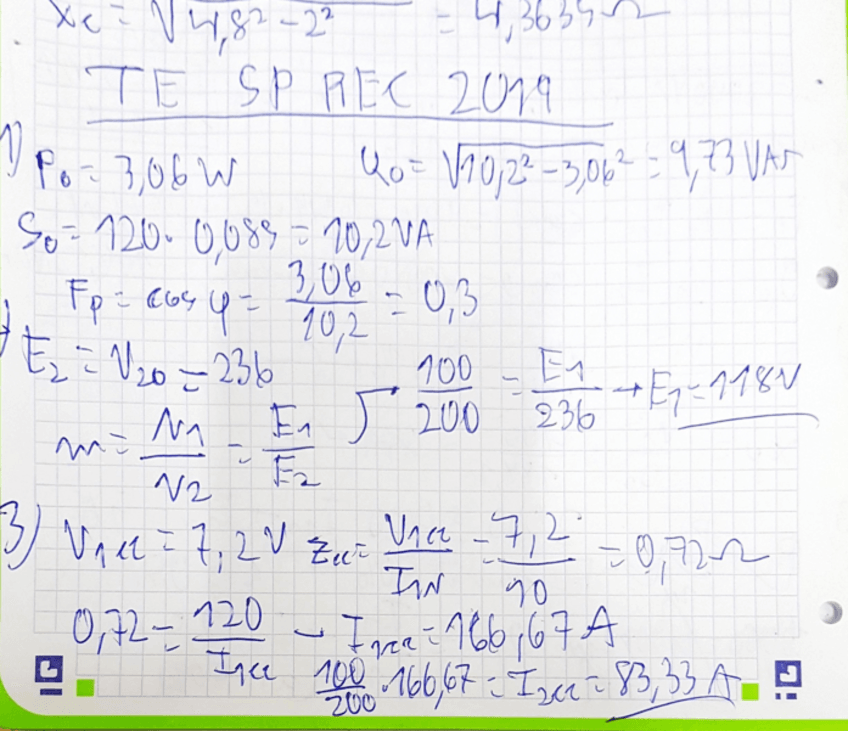 Xc = √4,8² - 2² = 4,3635 Ω
TE SP REC 2019
1) P₀ = 3,06 W Q₀ = √10,2² - 3,06² = 9,73 VAr
S₀ = 120 · 0,085 = 10,2 VA
Fp = cos φ = 3,06/10,2 = 0,3
E₂ = V₂₀ = 236
100/200 = E1/236 → E₁ = 118V
m = N1/N2 = E1/E2
3) V1cc = 7,2V Zcc = V1cc/I1N = 7,2/10 = 0,72 Ω
0,72 = 120/I1cc - I1cc = 166,67 A
100/200 · 166,67 = I2cc = 83,33 A